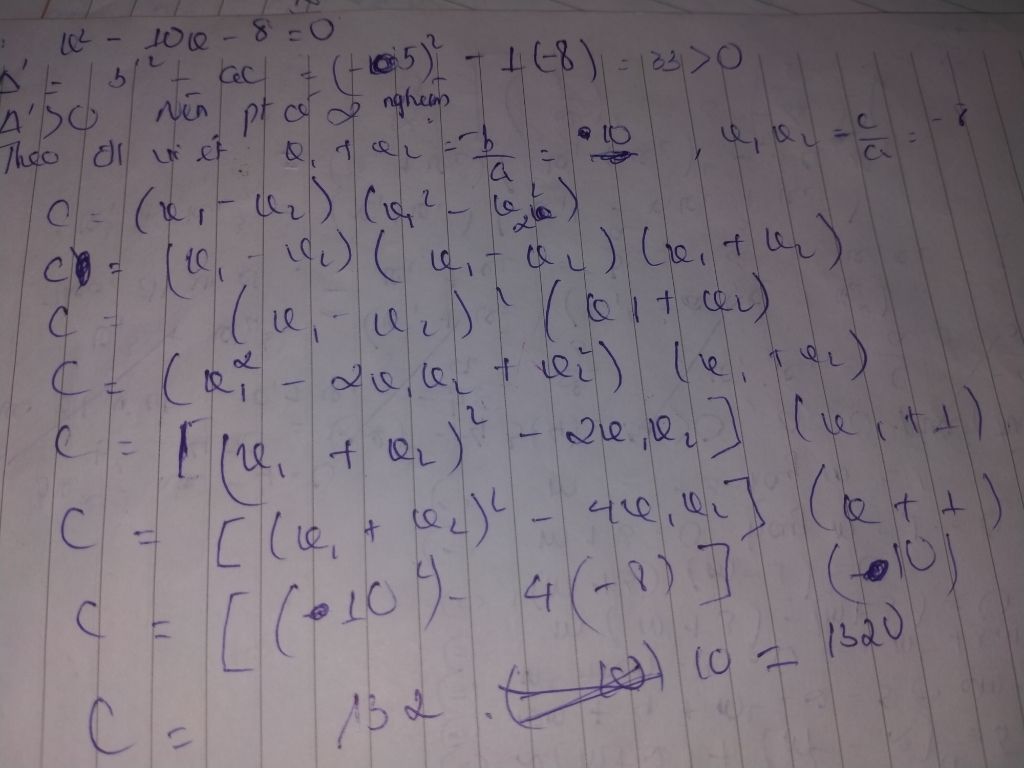 x² - 10x - 8 = 0
Δ' = b'² - ac = (-5)² - 1(-8) = 33 > 0
Δ' > 0 Nên pt có 2 nghiệm
Theo đl vi ét x₁ + x₂ = -b/a = 10, x₁x₂ = c/a = -8
C = (x₁ - x₂) (x₁² - x₂²)
C = (x₁ - x₂) (x₁ - x₂) (x₁ + x₂)
C = (x₁ - x₂)² (x₁ + x₂)
C = (x₁² - 2x₁x₂ + x₂²) (x₁ + x₂)
C = [(x₁ + x₂)² - 2x₁x₂] (x₁ + 1)
C = [(x₁ + x₂)² - 4x₁x₂] (x + 1)
C = [(10²) - 4(-8)] (10)
C = 132 . 10 = 1320